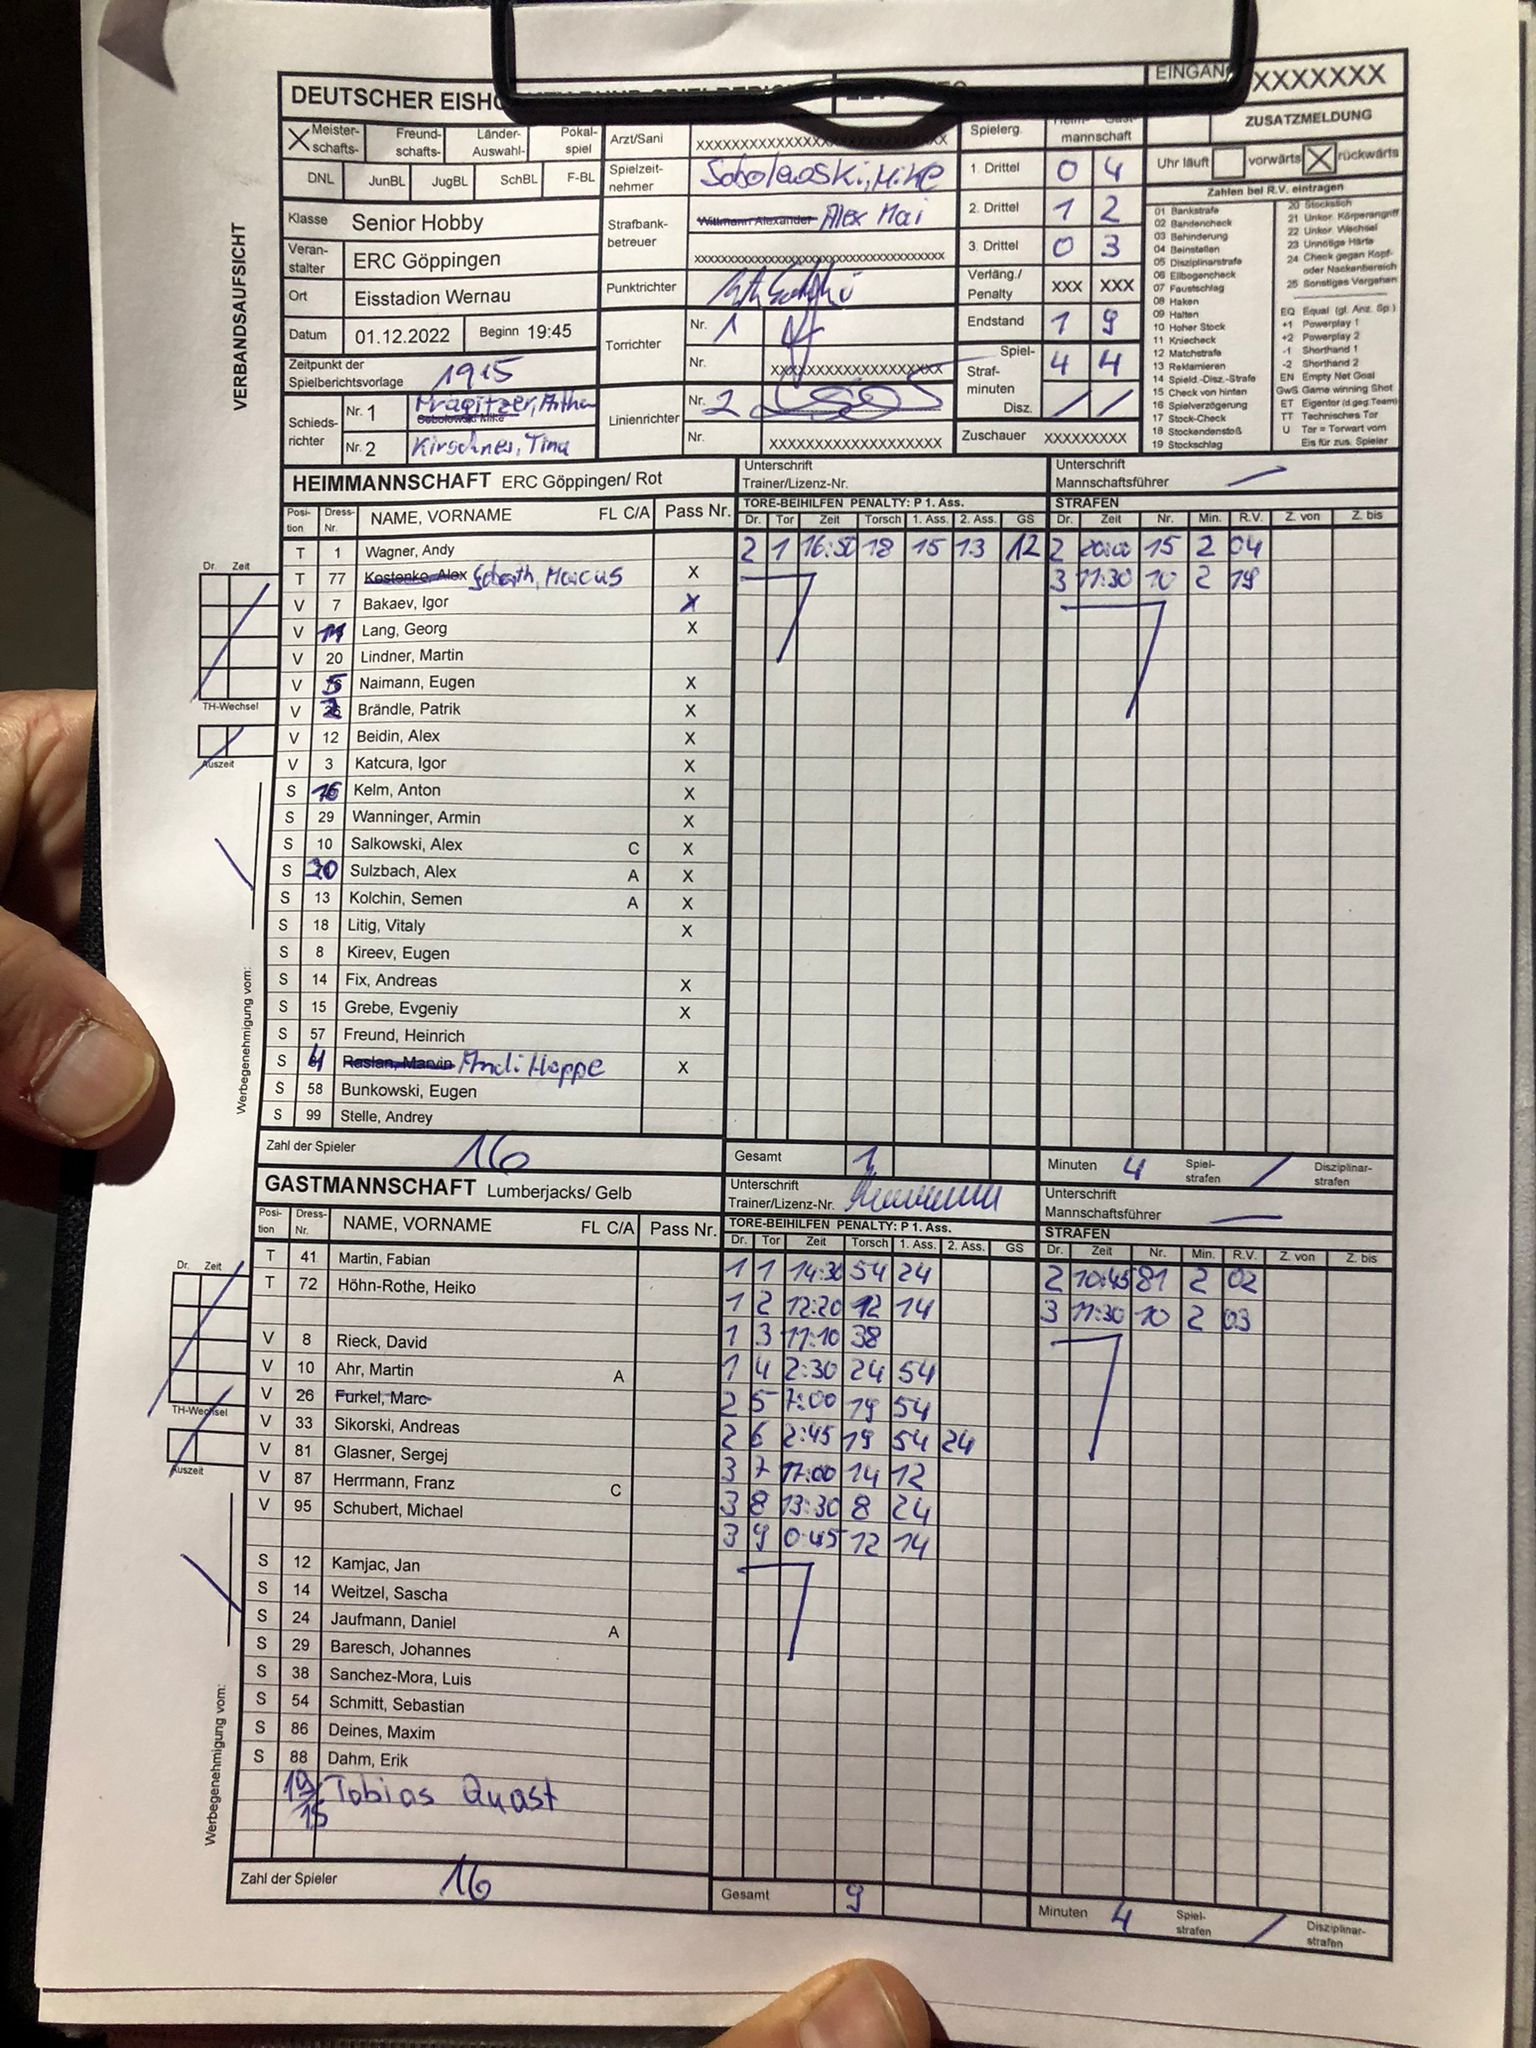 DEUTSCHER EISHO
EINGANG XXXXXXX
Meister-schafts- Freund-schafts- Länder-Auswahl- Pokal-spiel
DNL JunBL JugBL SchBL F-BL
Klasse Senior Hobby
Veran-stalter ERC Göppingen
Ort Eisstadion Wernau
Datum 01.12.2022 Beginn 19:45
Zeitpunkt der Spielberichtsvorlage 1915
Schieds-richter Nr. 1
Nr. 2 Kirschner, Tina
Arzt/Sani XXXXXXXXXXXXXXXXXXXXXXXXX
Spielzeit-nehmer Sobolewski, Mike
Strafbank-betreuer Wittmann Alexander Alex Mai
XXXXXXXXXXXXXXXXXXXXXXXXX
Punktrichter
Torrichter Nr. 1
Nr. XXXXXXXXXXXXXXXXX
Linienrichter Nr. 2
Nr. XXXXXXXXXXXXXXXXX
Spielerg. Heim- Gast-
mannschaft
1. Drittel 0 4
2. Drittel 1 2
3. Drittel 0 3
Verläng./ Penalty XXX XXX
Endstand 1 9
Straf-minuten Spiel- 4 4
Disz. / /
Zuschauer XXXXXXXXX
ZUSATZMELDUNG
Uhr läuft vorwärts rückwärts
Zahlen bei R.V. eintragen
01 Bankstrafe
02 Bandencheck
03 Behinderung
04 Beinstellen
05 Disziplinarstrafe
06 Ellbogencheck
07 Faustschlag
08 Haken
09 Halten
10 Hoher Stock
11 Kniecheck
12 Matchstrafe
13 Reklamieren
14 Spield.-Disz.-Strafe
15 Check von hinten
16 Spielverzögerung
17 Stock-Check
18 Stockendenstoß
19 Stockschlag
20 Stockstich
21 Unkor. Körperangriff
22 Unkor. Wechsel
23 Unnötige Härte
24 Check gegen Kopf-
oder Nackenbereich
25 Sonstiges Vergehen
EQ Equal (gl. Anz. Sp.)
+1 Powerplay 1
+2 Powerplay 2
-1 Shorthand 1
-2 Shorthand 2
EN Empty Net Goal
GwS Game winning Shot
ET Eigentor (d.geg.Team)
TT Technisches Tor
U Tor = Torwart vom
Eis für zus. Spieler
VERBANDSAUFSICHT
HEIMMANNSCHAFT ERC Göppingen/ Rot
Unterschrift Trainer/Lizenz-Nr.
Unterschrift Mannschaftsführer
Posi-tion Dress-Nr. NAME, VORNAME FL C/A Pass Nr.
TORE-BEIHILFEN PENALTY: P 1. Ass. STRAFEN
Dr. Tor Zeit Torsch 1. Ass. 2. Ass. GS Dr. Zeit Nr. Min. R.V. Z. von Z. bis
T 1 Wagner, Andy 2 1 16:50 18 15 13 12 2 20:00 15 2 04
T 77 Kostenko, Alex Marcus X 3 11:30 10 2 19
V 7 Bakaev, Igor X
V Lang, Georg X
V 20 Lindner, Martin
V 5 Naimann, Eugen X
V 2 Brändle, Patrik X
V 12 Beidin, Alex X
V 3 Katcura, Igor X
S 16 Kelm, Anton X
S 29 Wanninger, Armin X
S 10 Salkowski, Alex C X
S 30 Sulzbach, Alex A X
S 13 Kolchin, Semen A X
S 18 Litig, Vitaly X
S 8 Kireev, Eugen
S 14 Fix, Andreas X
S 15 Grebe, Evgeniy X
S 57 Freund, Heinrich
S 4 Raslan, Marvin Andi Hoppe X
S 58 Bunkowski, Eugen
S 99 Stelle, Andrey
Dr. Zeit
TH-Wechsel
Auszeit
Werbegenehmigung vom:
Zahl der Spieler 16 Gesamt 1 Minuten 4 Spiel-strafen / Disziplinar-strafen
GASTMANNSCHAFT Lumberjacks/ Gelb
Unterschrift Trainer/Lizenz-Nr.
Unterschrift Mannschaftsführer
Posi-tion Dress-Nr. NAME, VORNAME FL C/A Pass Nr.
TORE-BEIHILFEN PENALTY: P 1. Ass. STRAFEN
Dr. Tor Zeit Torsch 1. Ass. 2. Ass. GS Dr. Zeit Nr. Min. R.V. Z. von Z. bis
T 41 Martin, Fabian 1 1 14:30 54 24 2 10:45 81 2 02
T 72 Höhn-Rothe, Heiko 1 2 12:20 12 14 3 11:30 10 2 03
1 3 11:10 38
V 8 Rieck, David 1 4 2:30 24 54
V 10 Ahr, Martin A 2 5 7:00 19 54
V 26 Furkel, Marc 2 6 2:45 19 54 24
V 33 Sikorski, Andreas 3 7 17:00 14 12
V 81 Glasner, Sergej 3 8 13:30 8 24
V 87 Herrmann, Franz C 3 9 0:45 12 14
V 95 Schubert, Michael
S 12 Kamjac, Jan
S 14 Weitzel, Sascha
S 24 Jaufmann, Daniel A
S 29 Baresch, Johannes
S 38 Sanchez-Mora, Luis
S 54 Schmitt, Sebastian
S 86 Deines, Maxim
S 88 Dahm, Erik
19/15 Tobias Quast
Dr. Zeit
TH-Wechsel
Auszeit
Werbegenehmigung vom:
Zahl der Spieler 16 Gesamt 9 Minuten 4 Spiel-strafen / Disziplinar-strafen